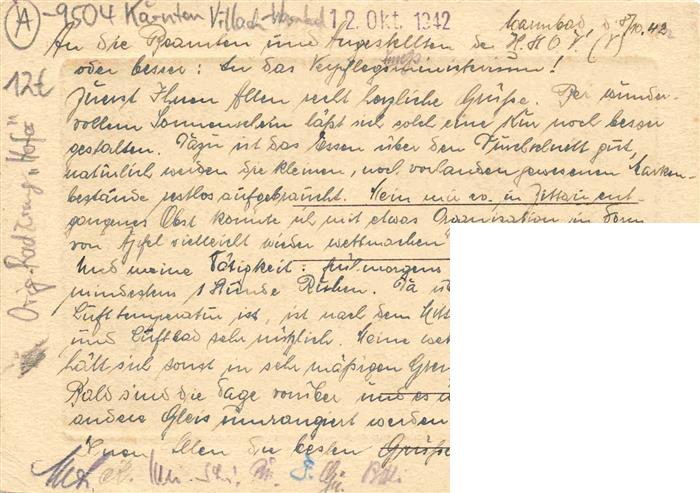 A -9504 Kärnten Villach-Warmbad 12. Okt. 1942
Warmbad, d. 8/10.42
An die Beamten und Angestellten der H.K.O.V. (V)
oder besser: An das Verpflegsministerium!
Zuerst Ihnen Allen recht herzliche Grüße. Bei wunder-
vollem Sonnenschein läßt sich solch eine Kur noch besser
gestalten. Dazu ist das Essen über dem Durchschnitt gut,
natürlich werden die kleinen, noch vorhanden gewesenen Marken-
bestände restlos aufgebraucht. Mein mir in ent-
gangenes Obst konnte ich mit etwas Organisation in Form
von Äpfel vielleicht wieder wettmachen
Und meine Tätigkeit: frühmorgens
mindestens 1 Stunde Ruhen. Da
Lufttemperatur ist, ist nach dem
und Luftbad sehr nützlich. Meine
hält sich sonst in sehr mäßigen
Bald sind die Tage vorüber und es
andere Gleis umrangiert werden
Ihnen Allen die besten Grüße
12€
Orig. Radierung "Hofa"